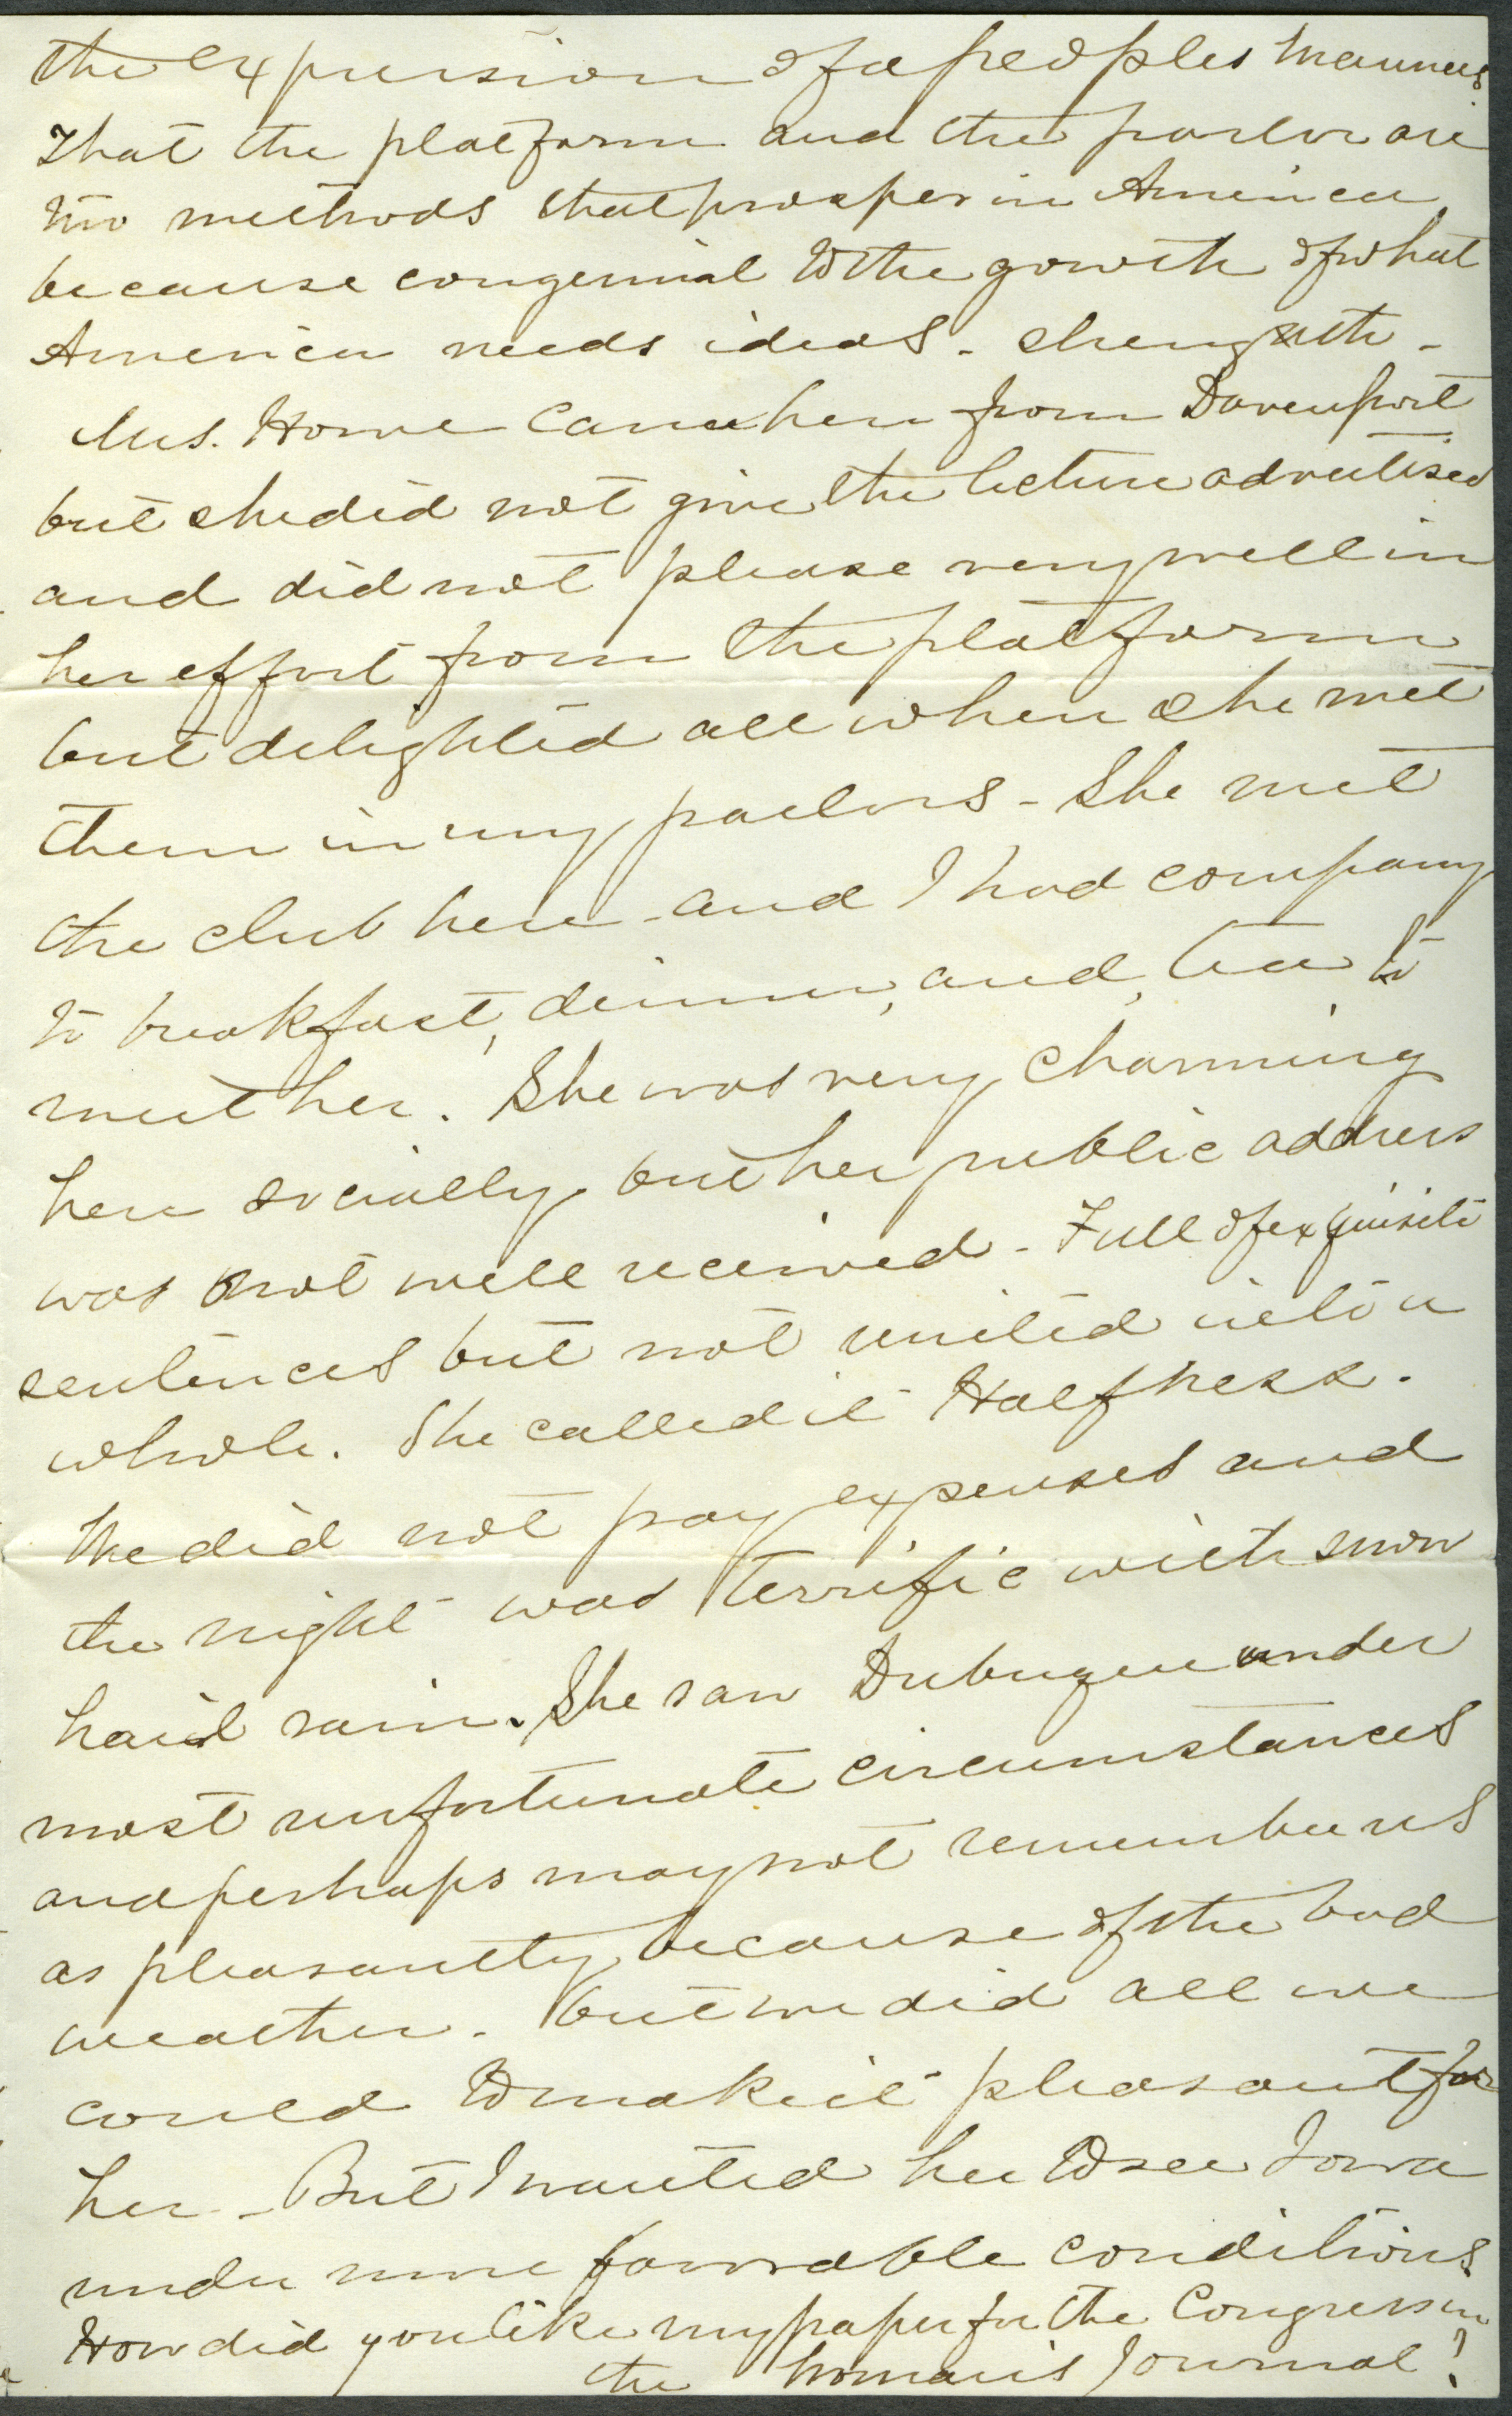 the expression of a peoples manners
That the platform and the parlor are
two methods that prosper in America
because congenial to the growth of what
America needs ideas - strength -
Mrs. Howe came here from Davenport
but she did not give the lecture advertised
and did not please very well in
her effort from the platform
but delighted all when she met
them in my parlors - She met
the club here - and I had company
to breakfast, dinner, and, tea to
meet her. She was very charming
here socially but her public address
was not well received - Full of exquisite
sentences but not united into a
whole. She called it Halfness.
We did not pay expenses and
the night was terrific with snow
hail rain. She saw Dubuque under
most unfortunate circumstances
and perhaps may not remember us
as pleasantly because of the bad
weather. but we did all we
could to make it pleasant for
her - But I wanted her to see Iowa
under more favorable conditions
How did you like my paper for the Congress in
the Woman's Journal?